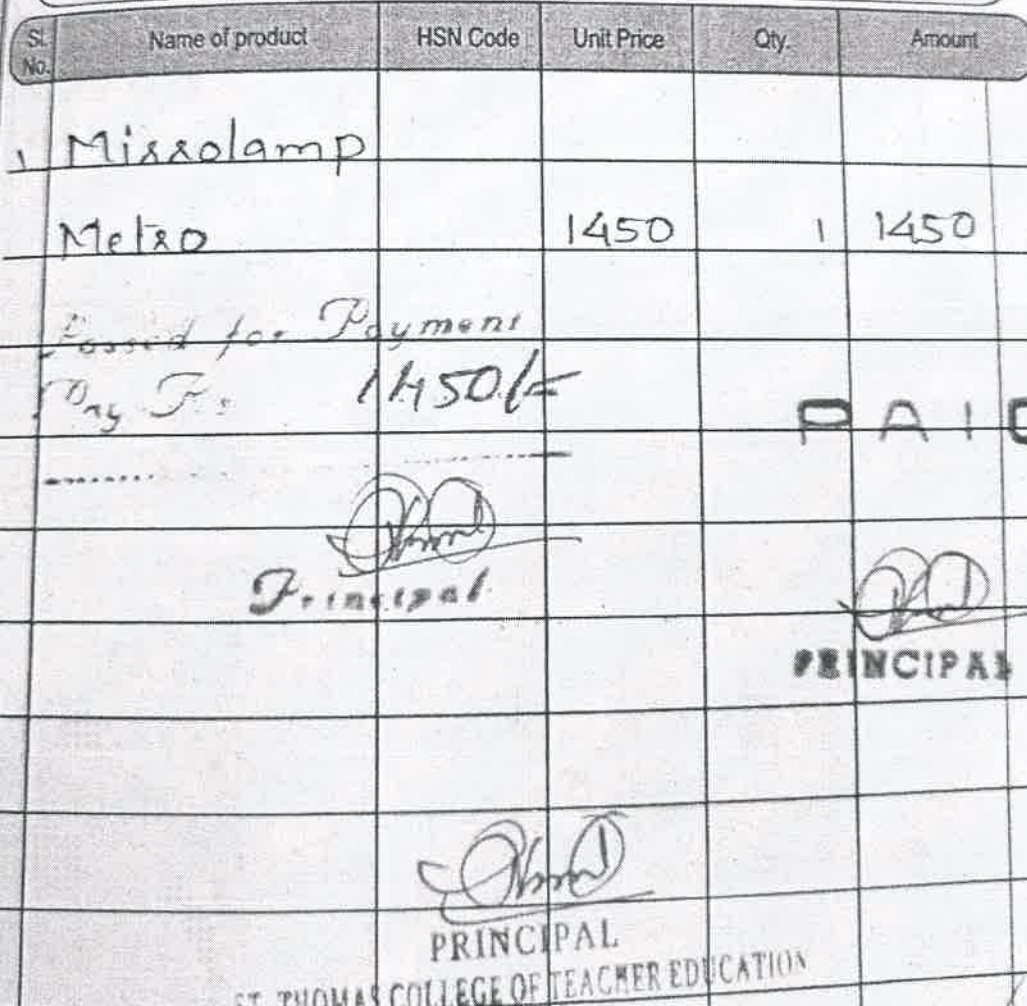 Sl. No. Name of product HSN Code Unit Price Qty. Amount
1 Mirrolamp
Metro 1450 1 1450
Passed for Payment
Pay Rs 1450/=
PAID
Principal
PRINCIPAL
PRINCIPAL
ST. THOMAS COLLEGE OF TEACHER EDUCATION